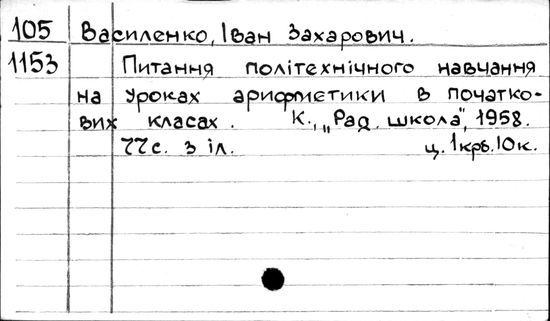 105 Василенко, Іван Захарович.
1153 Питання політехнічного навчання
на уроках арифметики в початко-
вих класах. К., „Рад. школа", 1958.
77с. з іл. ц. 1крб.10к.